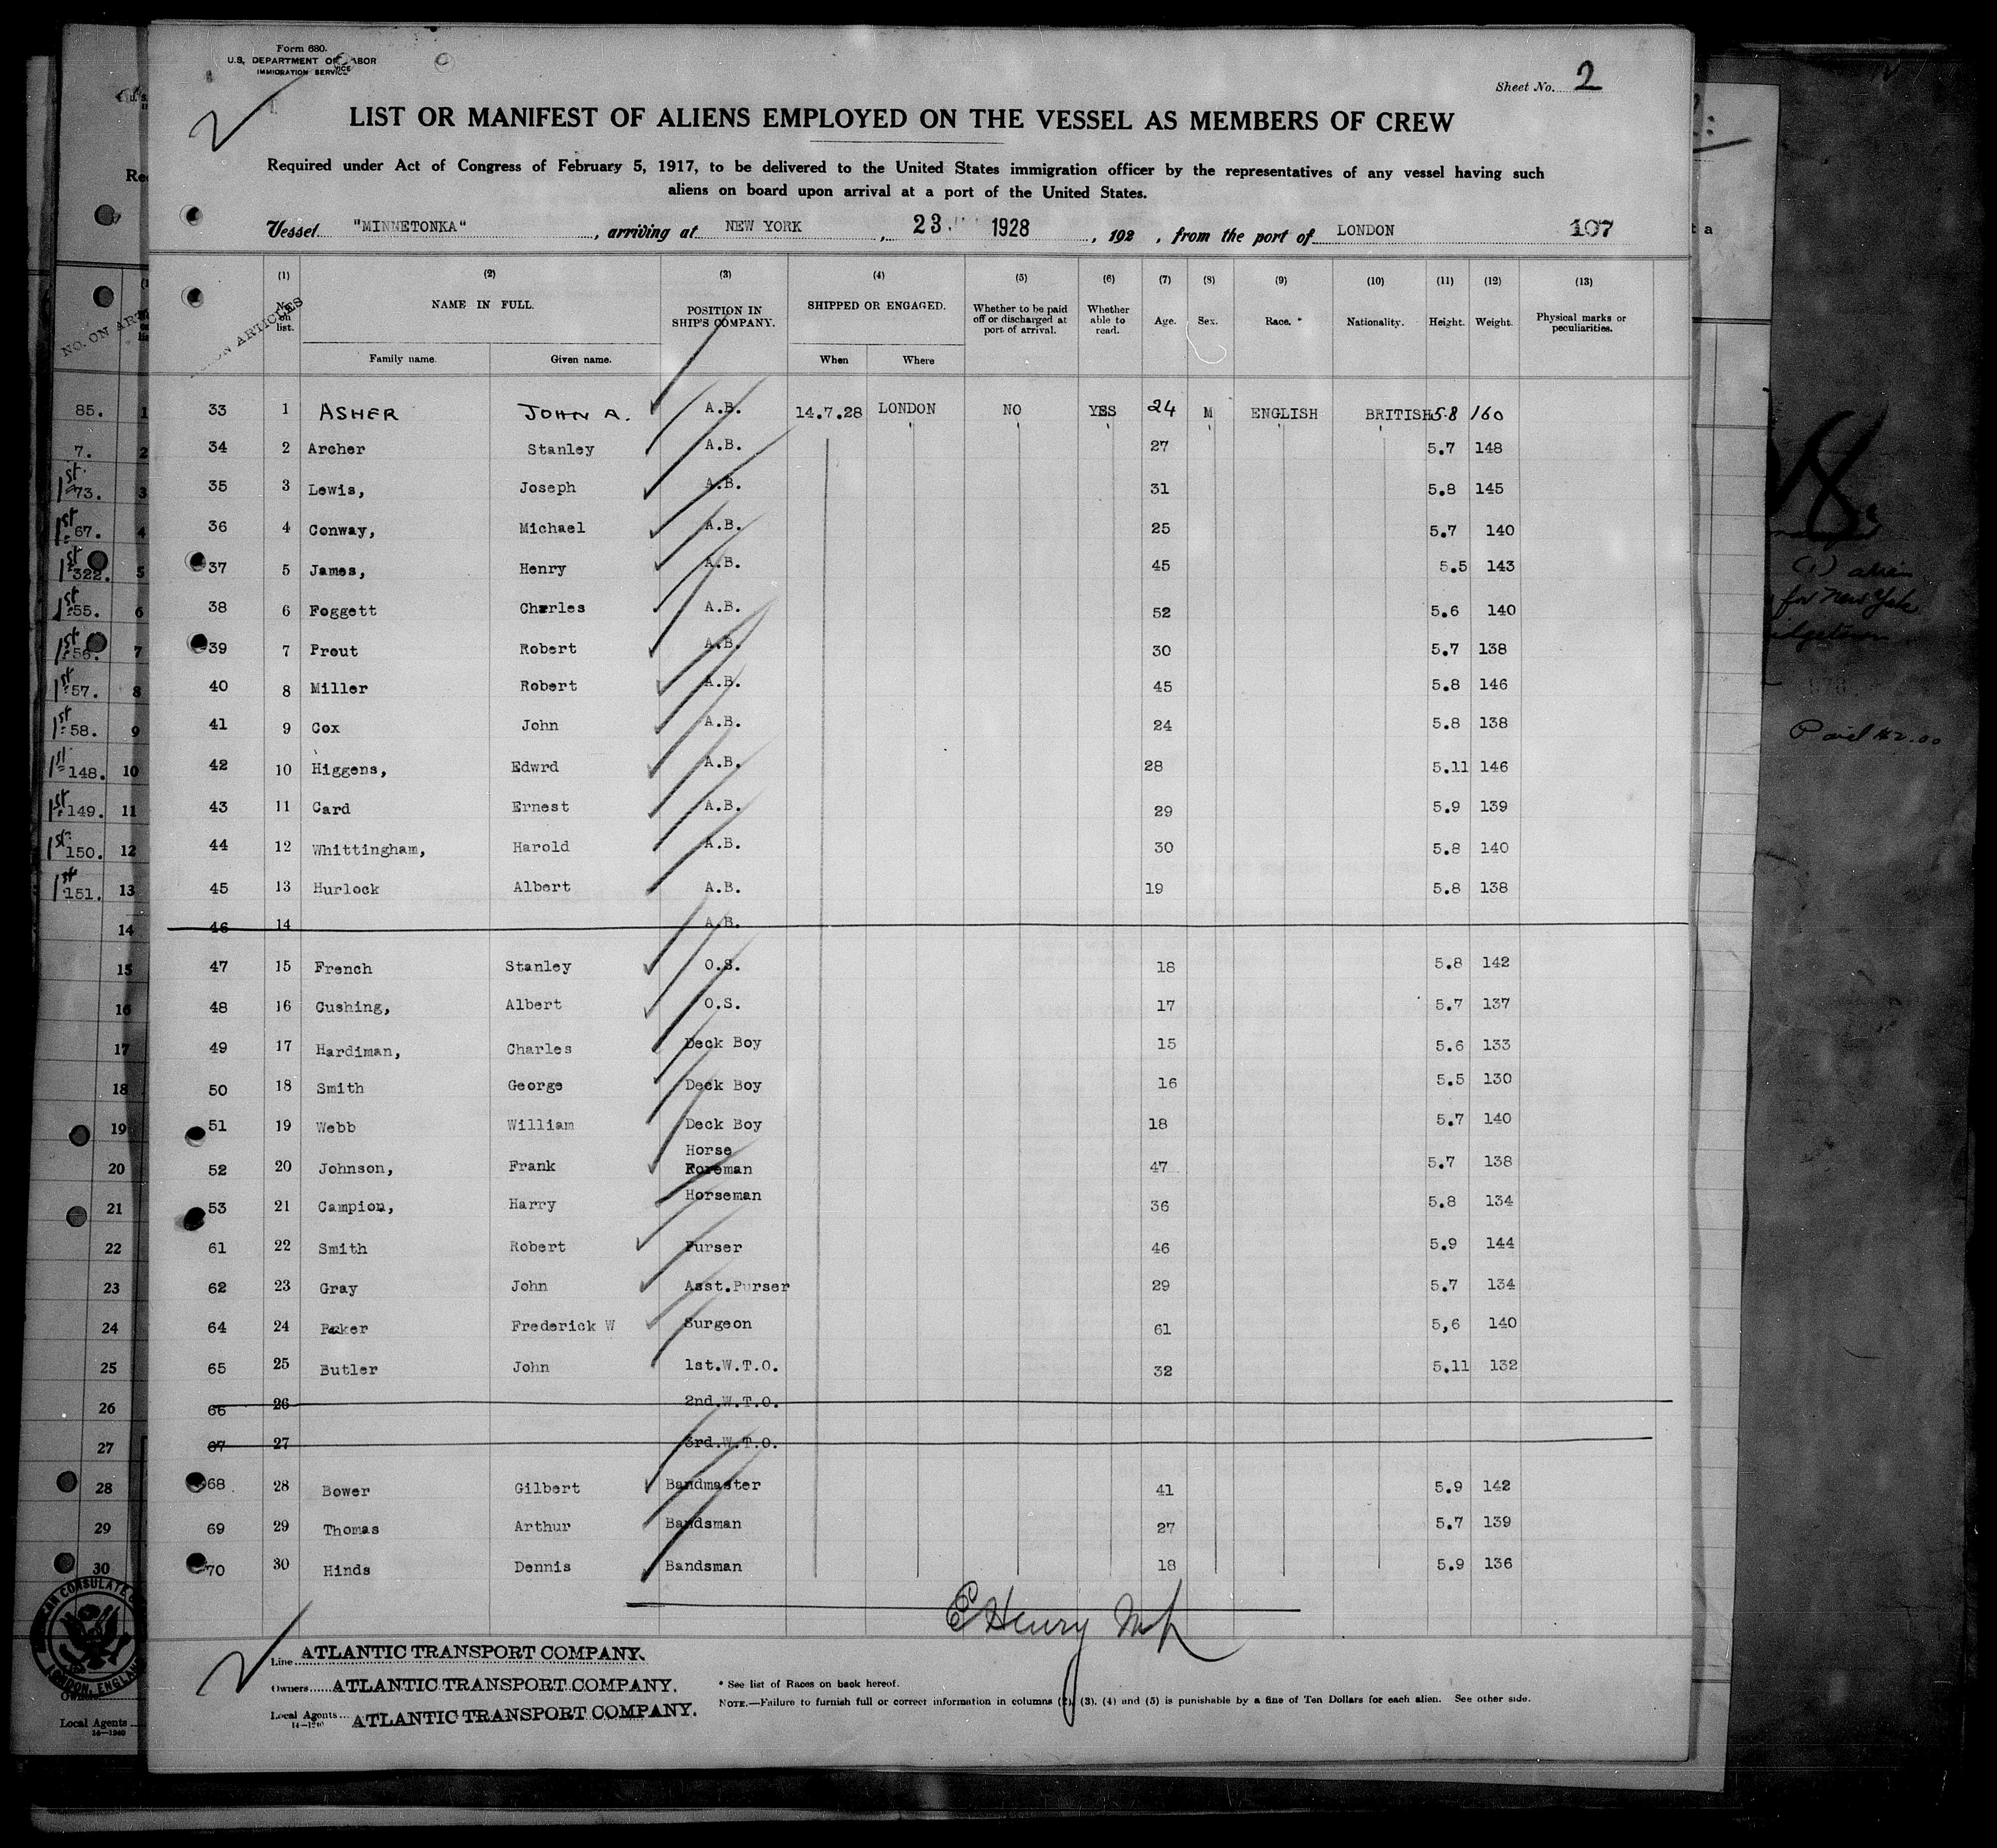 Form 680.
U.S. DEPARTMENT OF LABOR
IMMIGRATION SERVICE
Sheet No. 2
LIST OR MANIFEST OF ALIENS EMPLOYED ON THE VESSEL AS MEMBERS OF CREW
Required under Act of Congress of February 5, 1917, to be delivered to the United States immigration officer by the representatives of any vessel having such
aliens on board upon arrival at a port of the United States.
Vessel "MINNETONKA", arriving at NEW YORK, 23 1928, 192 , from the port of LONDON 107
(1) (2) (3) (4) (5) (6) (7) (8) (9) (10) (11) (12) (13)
NO. ON ARTICLES No. on list. NAME IN FULL. POSITION IN SHIP'S COMPANY. SHIPPED OR ENGAGED. Whether to be paid off or discharged at port of arrival. Whether able to read. Age. Sex. Race.* Nationality. Height. Weight. Physical marks or peculiarities.
Family name. Given name. When Where
33 1 ASHER JOHN A. A.B. 14.7.28 LONDON NO YES 24 M ENGLISH BRITISH 5.8 160
34 2 Archer Stanley A.B. 27 5.7 148
35 3 Lewis, Joseph A.B. 31 5.8 145
36 4 Conway, Michael A.B. 25 5.7 140
37 5 James, Henry A.B. 45 5.5 143
38 6 Foggett Charles A.B. 52 5.6 140
39 7 Prout Robert A.B. 30 5.7 138
40 8 Miller Robert A.B. 45 5.8 146
41 9 Cox John A.B. 24 5.8 138
42 10 Higgens, Edwrd A.B. 28 5.11 146
43 11 Card Ernest A.B. 29 5.9 139
44 12 Whittingham, Harold A.B. 30 5.8 140
45 13 Hurlock Albert A.B. 19 5.8 138
46 14 A.B.
47 15 French Stanley O.S. 18 5.8 142
48 16 Cushing, Albert O.S. 17 5.7 137
49 17 Hardiman, Charles Deck Boy 15 5.6 133
50 18 Smith George Deck Boy 16 5.5 130
51 19 Webb William Deck Boy 18 5.7 140
52 20 Johnson, Frank Horse Foreman 47 5.7 138
53 21 Campion, Harry Horseman 36 5.8 134
61 22 Smith Robert Purser 46 5.9 144
62 23 Gray John Asst.Purser 29 5.7 134
64 24 Frederick W Surgeon 61 5,6 140
65 25 Butler John 1st.W.T.O. 32 5.11 132
66 26 2nd.W.T.O.
67 27 3rd.W.T.O.
68 28 Bower Gilbert Bandmaster 41 5.9 142
69 29 Thomas Arthur Bandsman 27 5.7 139
70 30 Hinds Dennis Bandsman 18 5.9 136
E Henry
Line ATLANTIC TRANSPORT COMPANY.
Owners ATLANTIC TRANSPORT COMPANY.
Local Agents ATLANTIC TRANSPORT COMPANY.
14—1240
* See list of Races on back hereof.
NOTE.—Failure to furnish full or correct information in columns (2), (3), (4) and (5) is punishable by a fine of Ten Dollars for each alien. See other side.
NO. ON
85. 1
7. 2
1st 73. 3
1st 67. 4
1st 322. 5
1st 55. 6
1st 56. 7
1st 57. 8
1st 58. 9
1st 148. 10
1st 149. 11
1st 150. 12
1st 151. 13
14
15
16
17
18
19
20
21
22
23
24
25
26
27
28
29
30
LONDON, ENGLAND
Local Agents
(1) alien
for New York
Paid $2.00